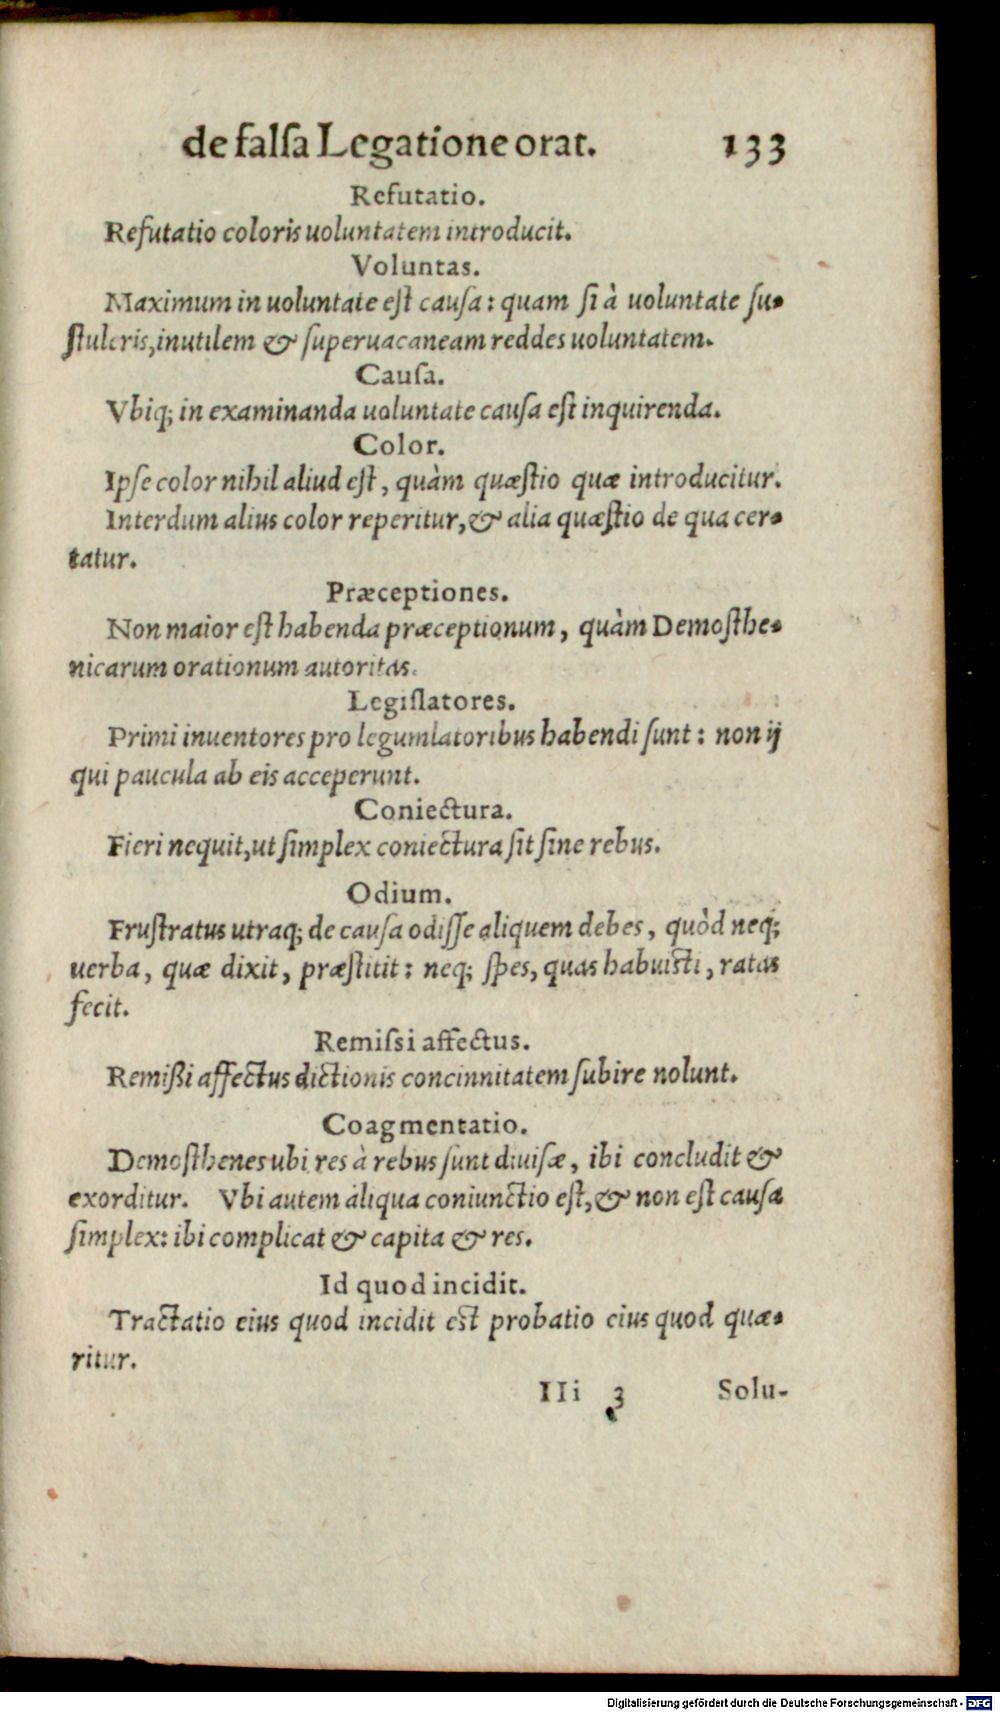 de falſa Legatione orat. 133
Refutatio.
Refutatio coloris uoluntatem introducit.
Voluntas.
Maximum in uoluntate eſt cauſa: quam ſi à uoluntate ſu-
ſtuleris, inutilem & ſuperuacaneam reddes uoluntatem.
Cauſa.
Vbiq; in examinanda uoluntate cauſa eſt inquirenda.
Color.
Ipſe color nihil aliud eſt, quàm quæſtio quæ introducitur.
Interdum alius color reperitur, & alia quæſtio de qua cer-
tatur.
Præceptiones.
Non maior eſt habenda præceptionum, quàm Demoſthe-
nicarum orationum autoritas.
Legiſlatores.
Primi inuentores pro legumlatoribus habendi ſunt: non ij
qui paucula ab eis acceperunt.
Coniectura.
Fieri nequit, ut ſimplex coniectura ſit ſine rebus.
Odium.
Fruſtratus utraq; de cauſa odiſſe aliquem debes, quòd neq;
uerba, quæ dixit, præſtitit: neq; ſpes, quas habuiſti, ratas
fecit.
Remiſsi affectus.
Remißi affectus dictionis concinnitatem ſubire nolunt.
Coagmentatio.
Demoſthenes ubi res à rebus ſunt diuiſæ, ibi concludit &
exorditur. Vbi autem aliqua coniunctio eſt, & non eſt cauſa
ſimplex: ibi complicat & capita & res.
Id quod incidit.
Tractatio eius quod incidit eſt probatio eius quod quæ-
ritur.
IIi 3 Solu-
Digitalisierung gefördert durch die Deutsche Forschungsgemeinschaft - DFG